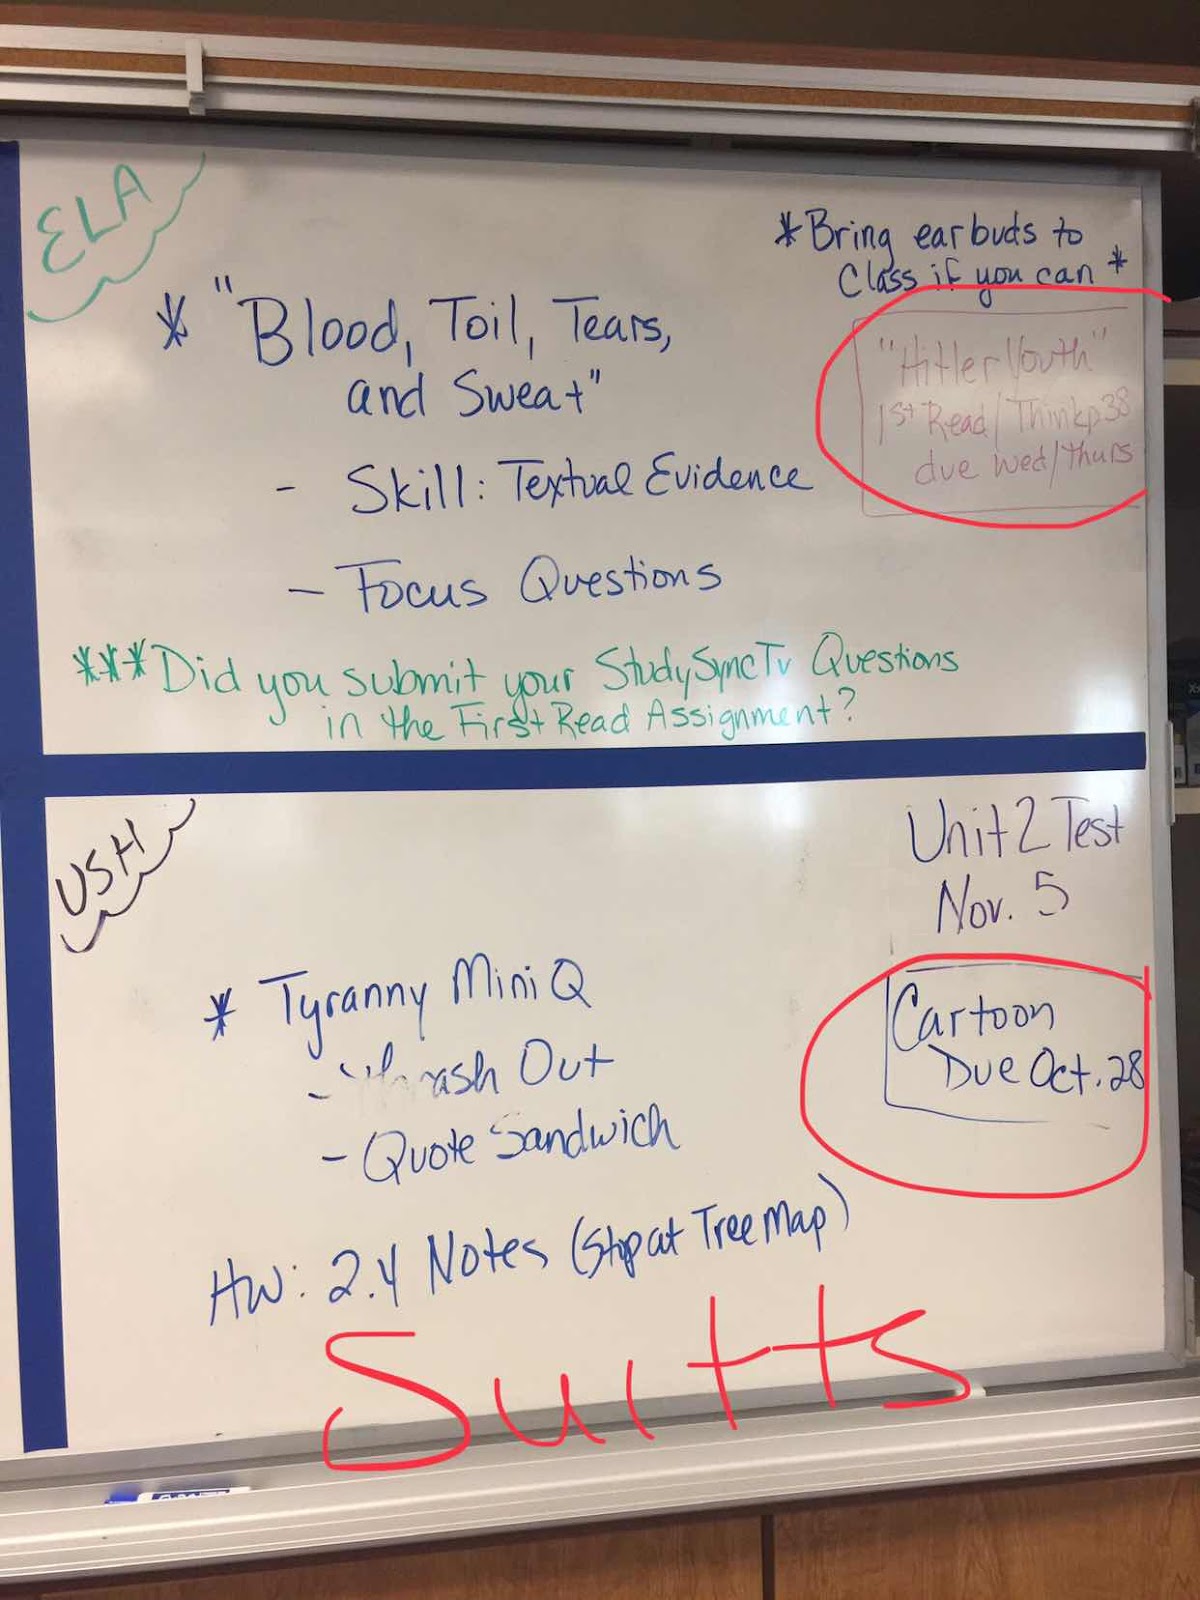 ELA
*Bring earbuds to
Class if you can *
* "Blood, Toil, Tears,
and Sweat"
"Hitler Youth"
1st Read/Think p38
due Wed/Thurs
- Skill: Textual Evidence
- Focus Questions
***Did you submit your StudySyncTv Questions
in the First Read Assignment?
USH
Unit 2 Test
Nov. 5
* Tyranny Mini Q
Cartoon
Due Oct. 28
- Thrash Out
- Quote Sandwich
HW: 2.4 Notes (Stop at Tree Map)
Suitts